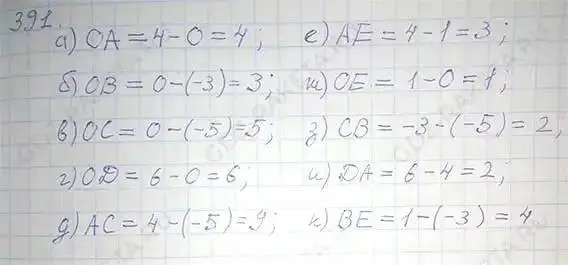 391.
а) OA = 4 - 0 = 4; е) AE = 4 - 1 = 3;
б) OB = 0 - (-3) = 3; ж) OE = 1 - 0 = 1;
в) OC = 0 - (-5) = 5; з) CB = -3 - (-5) = 2;
г) OD = 6 - 0 = 6; и) DA = 6 - 4 = 2;
д) AC = 4 - (-5) = 9; к) BE = 1 - (-3) = 4